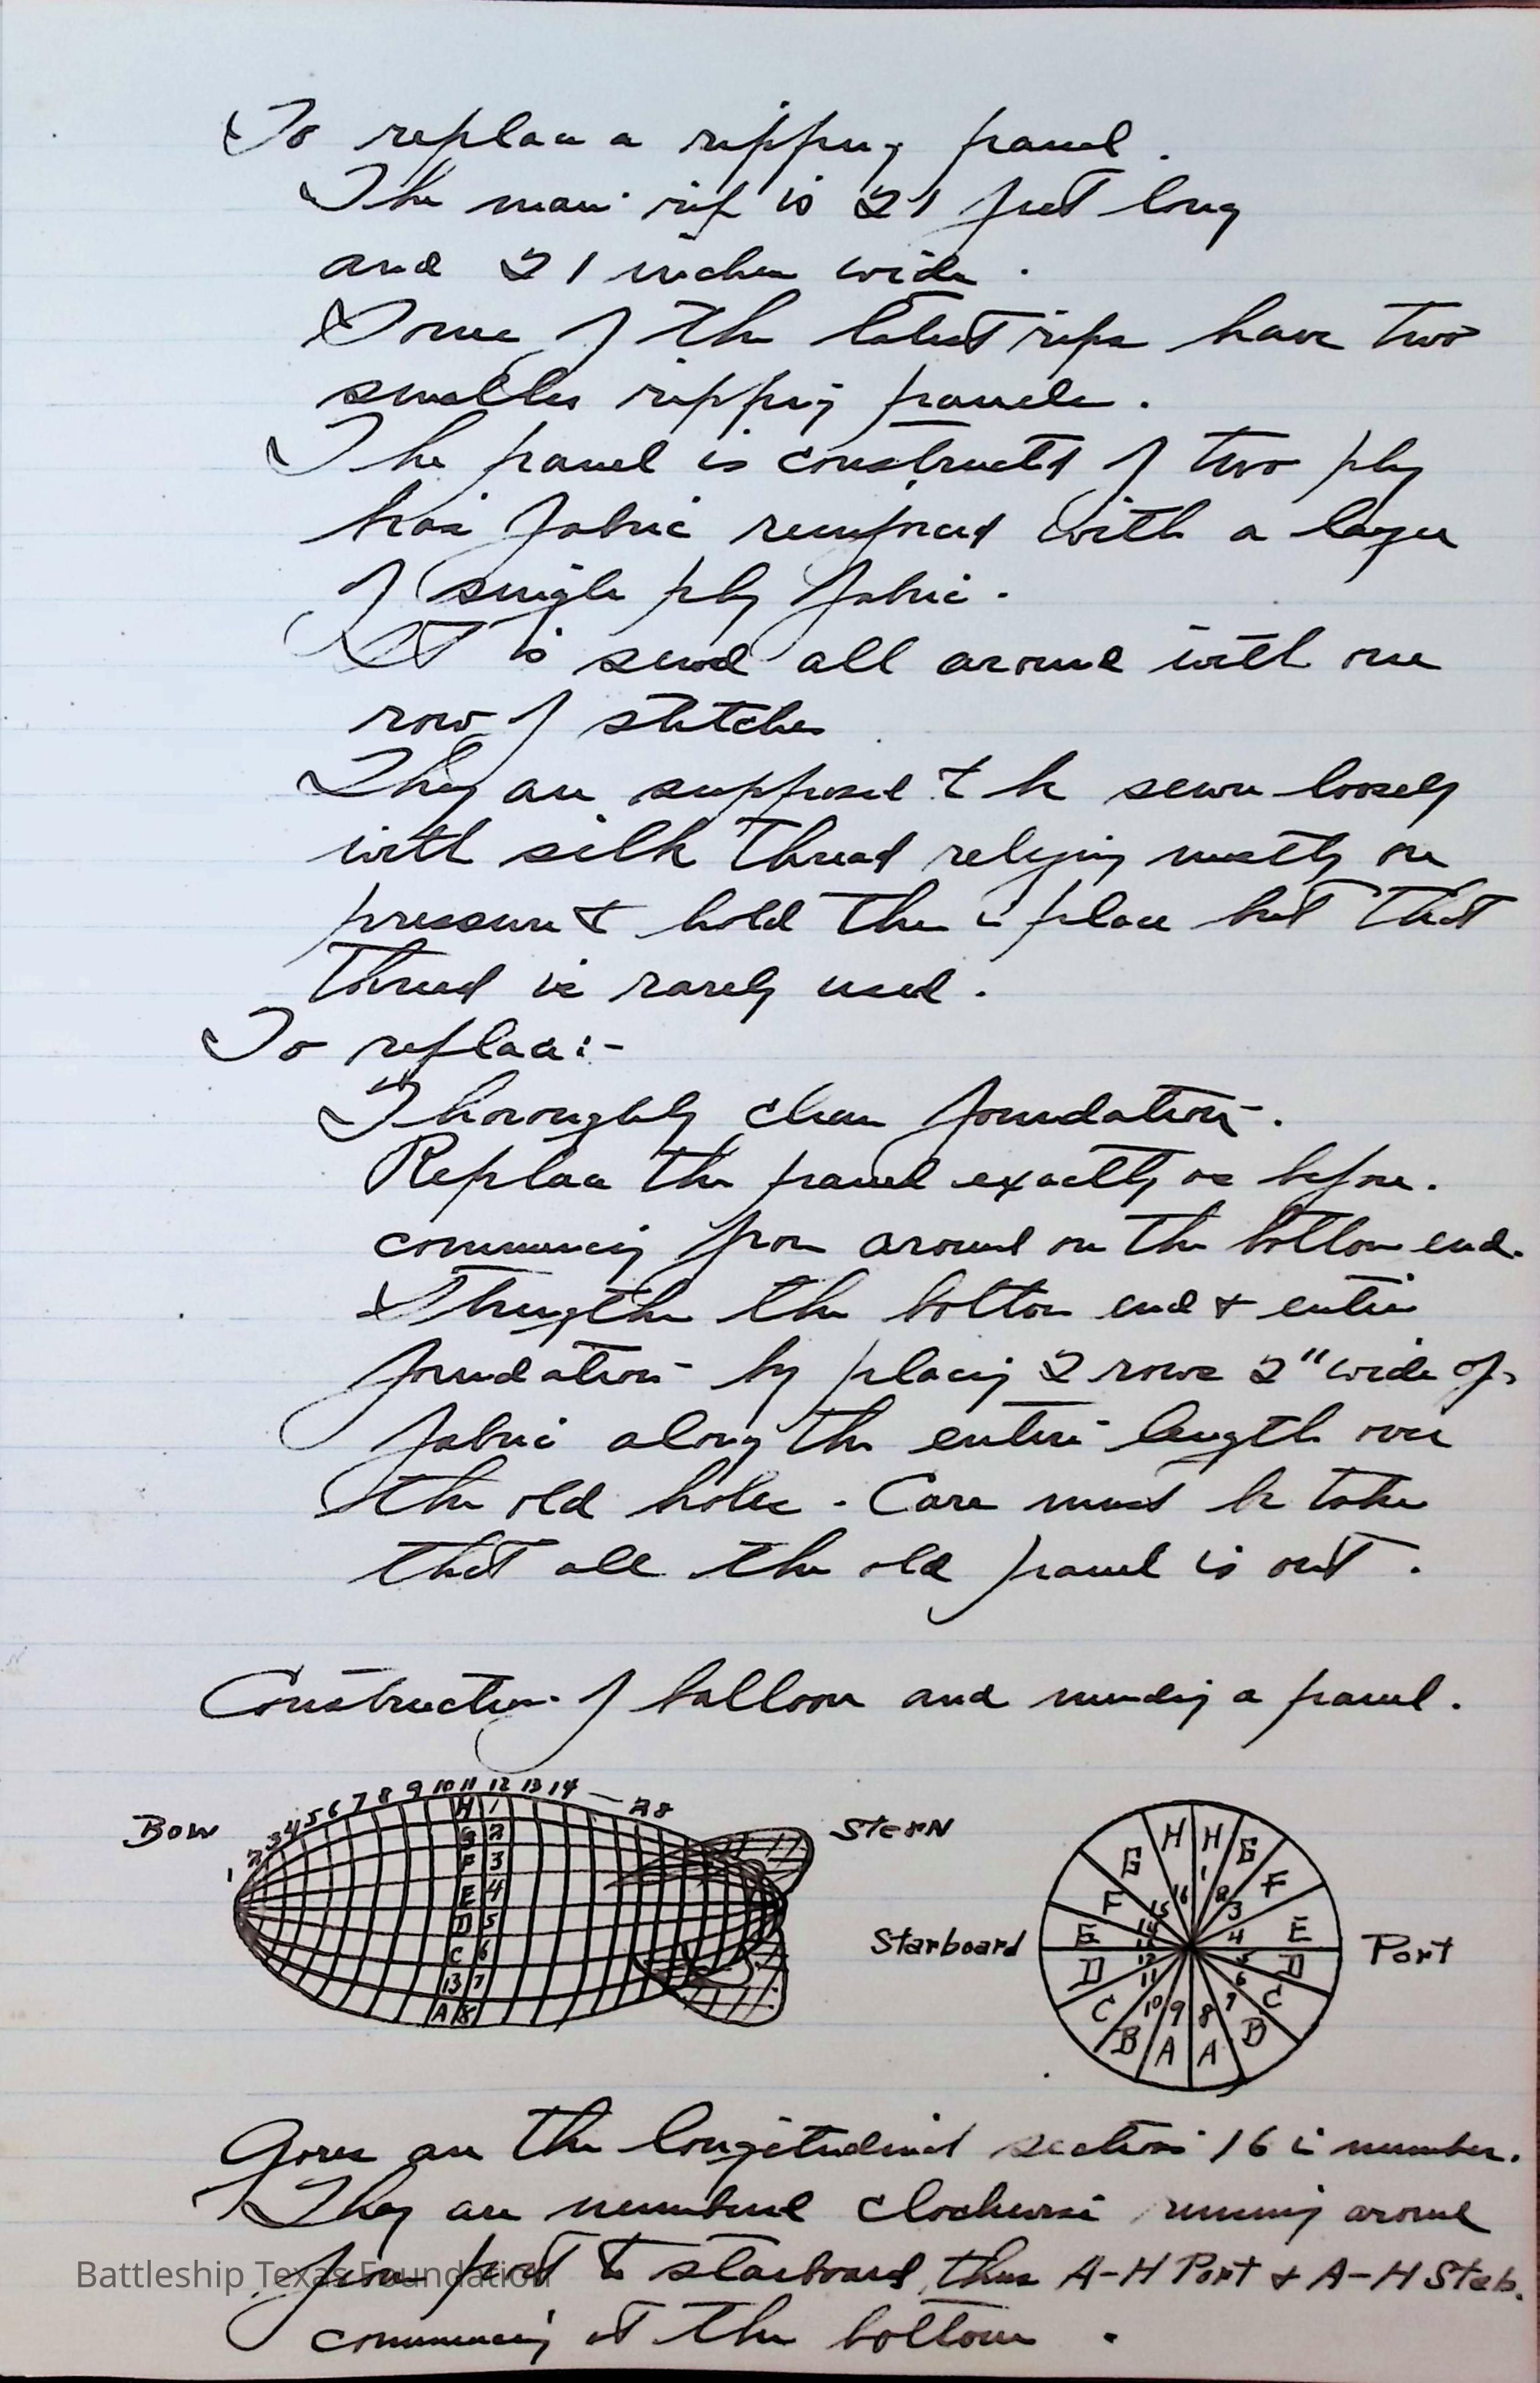 To replace a ripping panel.
The main rip is 21 feet long
and 21 inches wide.
Some of the latest rips have two
smaller ripping panels.
The panel is constructed of two ply
bias fabric reinforced with a layer
of single ply fabric.
It is sewed all around with one
row of stitches
They are supposed to be sewn loosely
with silk thread relying mostly on
pressure to hold them in place but that
thread is rarely used.
To replace:-
Thoroughly clean foundation.
Replace the panel exactly as before.
commencing from around on the bottom end.
Strengthen the bottom end & entire
foundation by placing 2 rows 2" wide of
fabric along the entire length over
the old holes. Care must be taken
that all the old panel is out.
Construction of balloon and mending a panel.
1 2 3 4 5 6 7 8 9 10 11 12 13 14 — 28
Bow
Stern
H 1
G 2
F 3
E 4
D 5
C 6
13 7
A 8
H H
G G
F F
E E
D D
C C
B B
A A
1 2 3 4 5 6 7 8 9 10 11 12 13 14 15 16
Starboard
Port
Gores are the longitudinal sections 16 in number.
They are numbered clockwise running around
from port to starboard, thus A-H Port & A-H Stab.
commencing at the bottom.
Battleship Texas Foundation